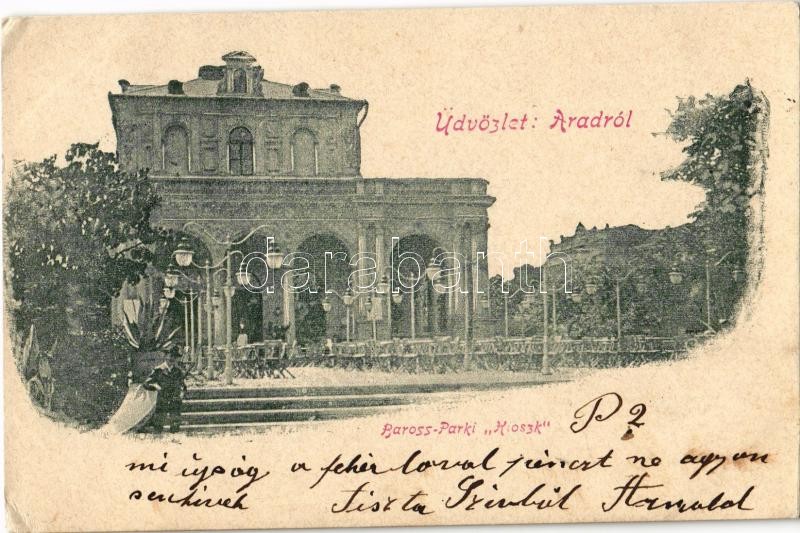 Üdvözlet: Aradról
darabanth
Baross-Parki „Kioszk"
P 2
mi ujság a fehér loval pénzt ne agyon
senkinek Tiszta Szivből Arnold